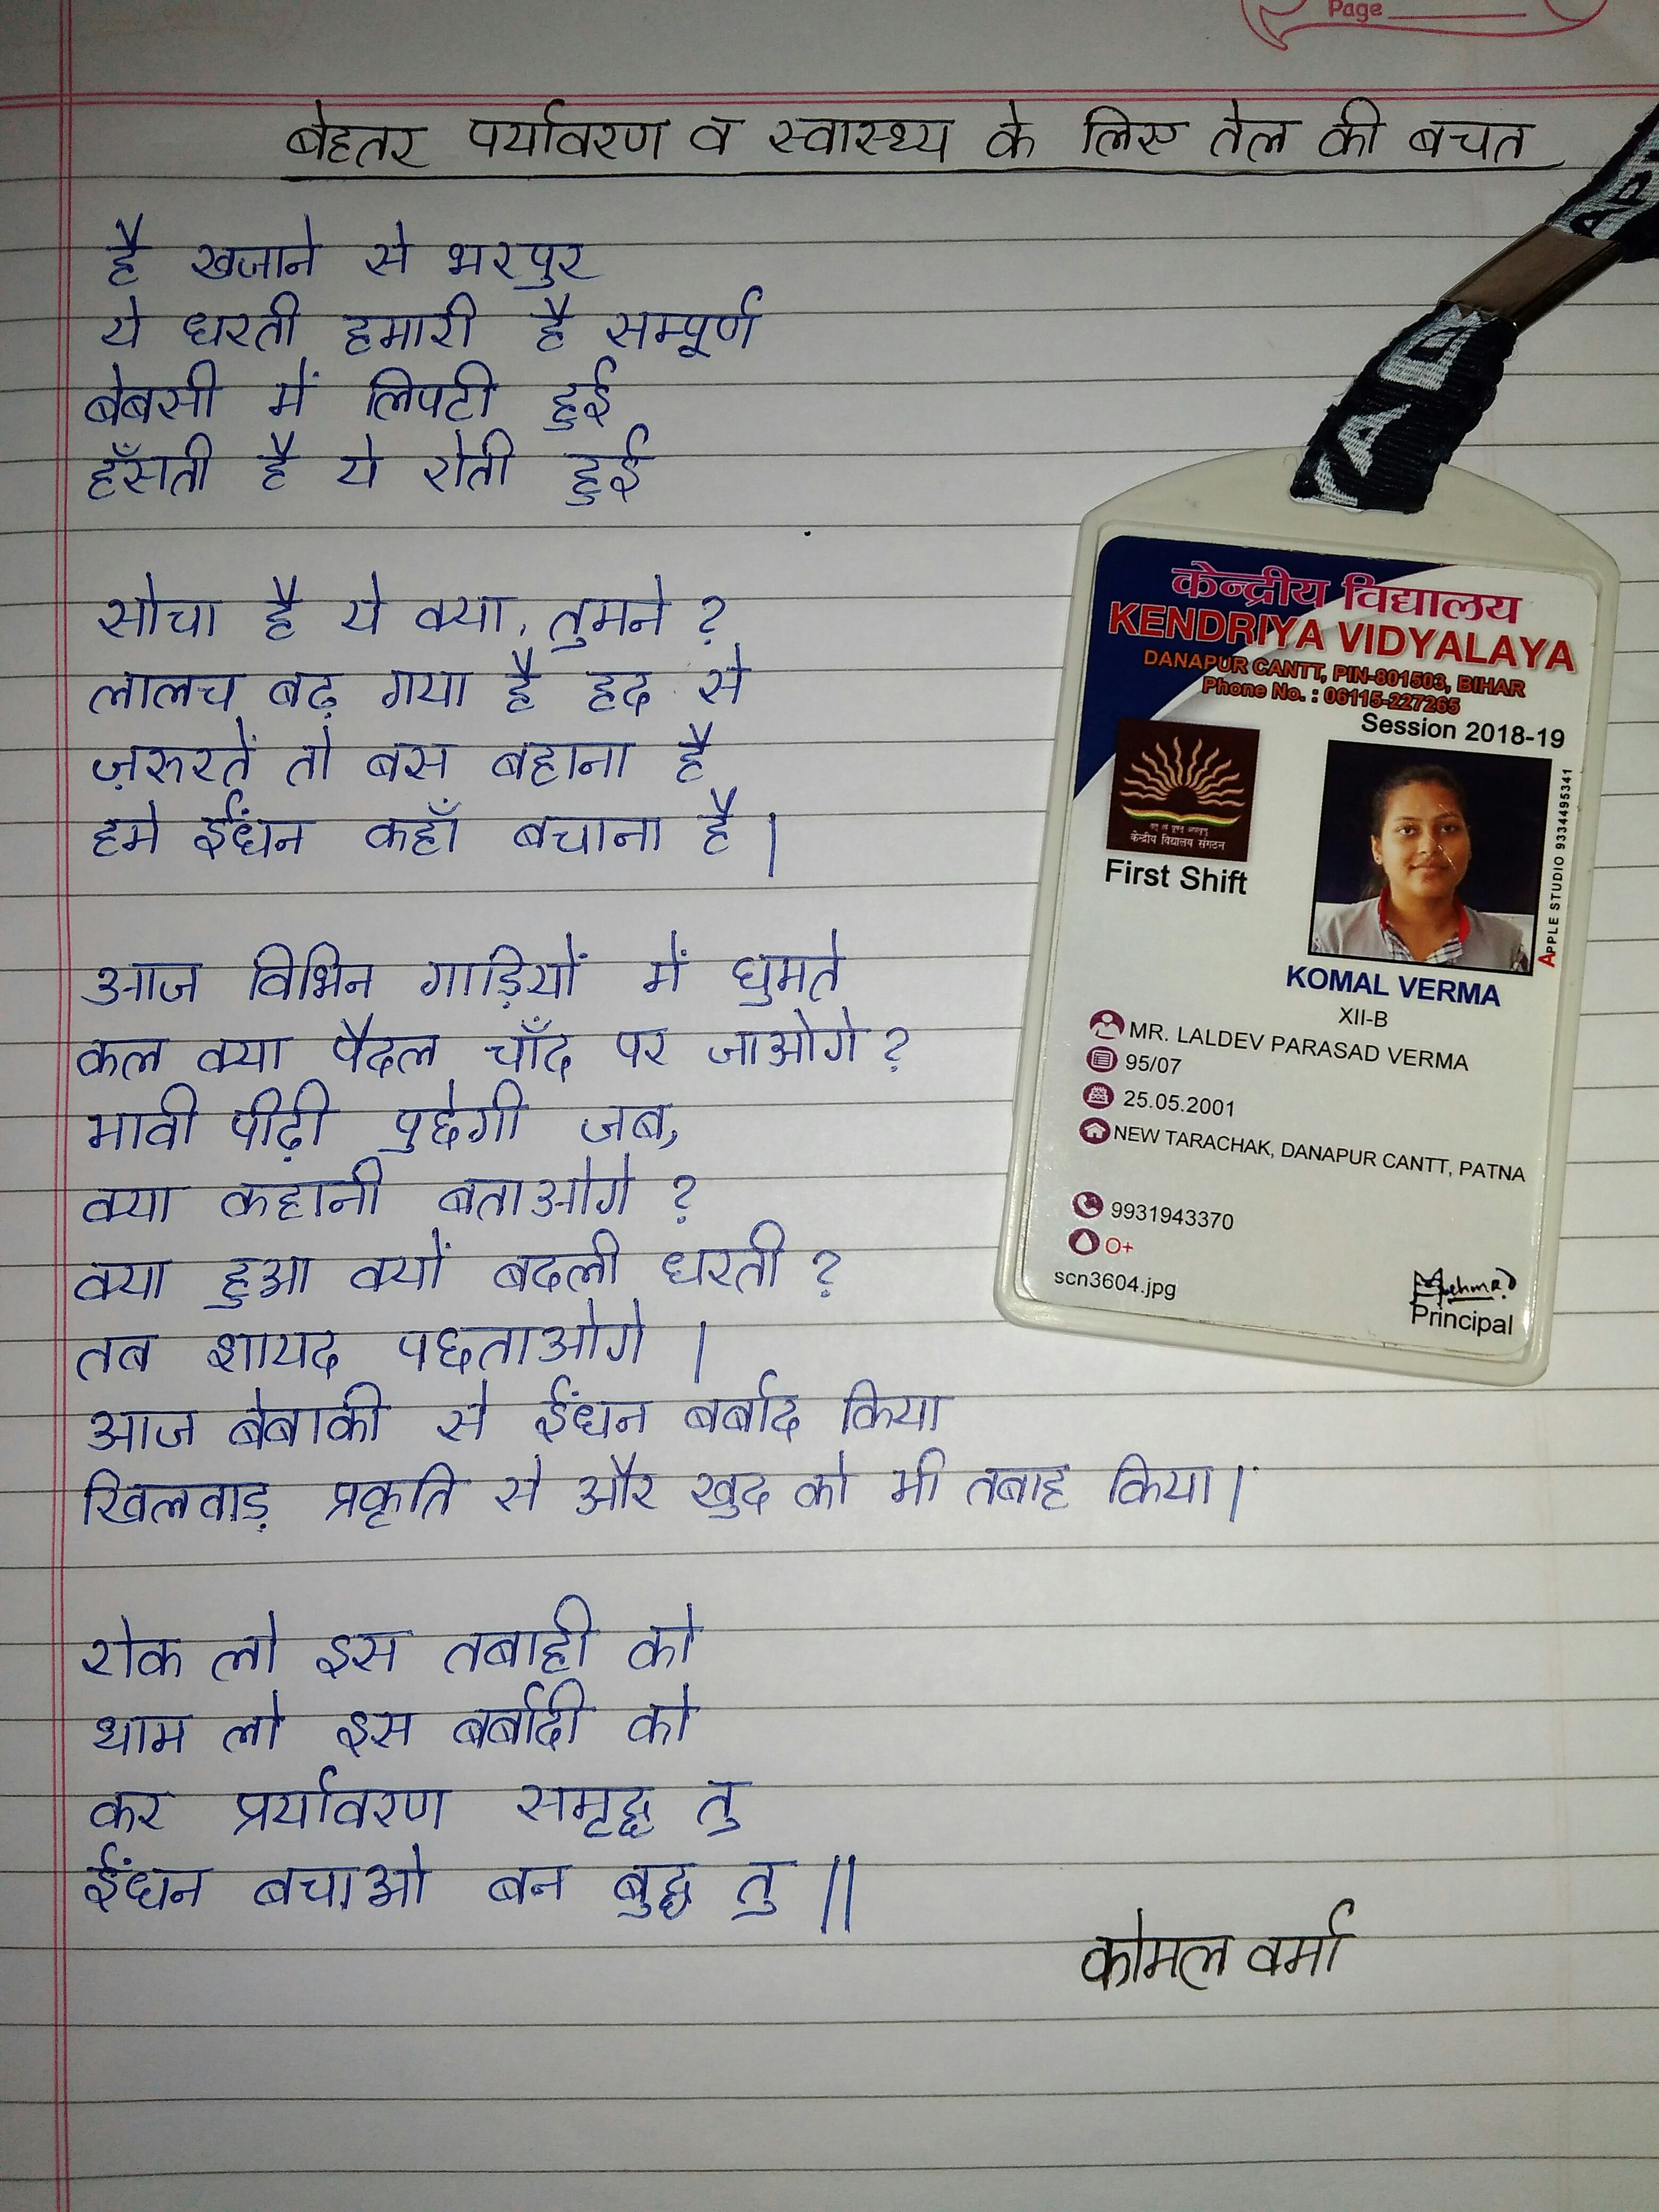 Page
बेहतर पर्यावरण व स्वास्थ्य के लिए तेल की बचत
है खजाने से भरपुर
ये धरती हमारी है सम्पूर्ण
बेबसी में लिपटी हुई
हँसती है ये रोती हुई
सोचा है ये क्या, तुमने ?
लालच बढ़ गया है हद से
ज़रूरतें तो बस बहाना है
हमे ईंधन कहाँ बचाना है।
आज विभिन गाड़ियों में घुमते
कल क्या पैदल चाँद पर जाओगे ?
भावी पीढ़ी पुछेगी जब,
क्या कहानी बताओगे ?
क्या हुआ क्यों बदली धरती ?
तब शायद पछताओगे ।
आज बेबाकी से ईंधन बर्बाद किया
खिलवाड़ प्रकृति से और खुद को भी तबाह किया।
रोक लो इस तबाही को
थाम लो इस बर्बादी को
कर प्रर्यावरण समृद्ध तु
ईंधन बचाओ बन बुद्ध तु ॥
कोमल वर्मा
केन्द्रीय विद्यालय
KENDRIYA VIDYALAYA
DANAPUR CANTT, PIN-801503, BIHAR
Phone No. : 06115-227265
Session 2018-19
केन्द्रीय विद्यालय संगठन
First Shift
APPLE STUDIO 9334495341
KOMAL VERMA
XII-B
MR. LALDEV PARASAD VERMA
95/07
25.05.2001
NEW TARACHAK, DANAPUR CANTT, PATNA
9931943370
O+
scn3604.jpg
Principal